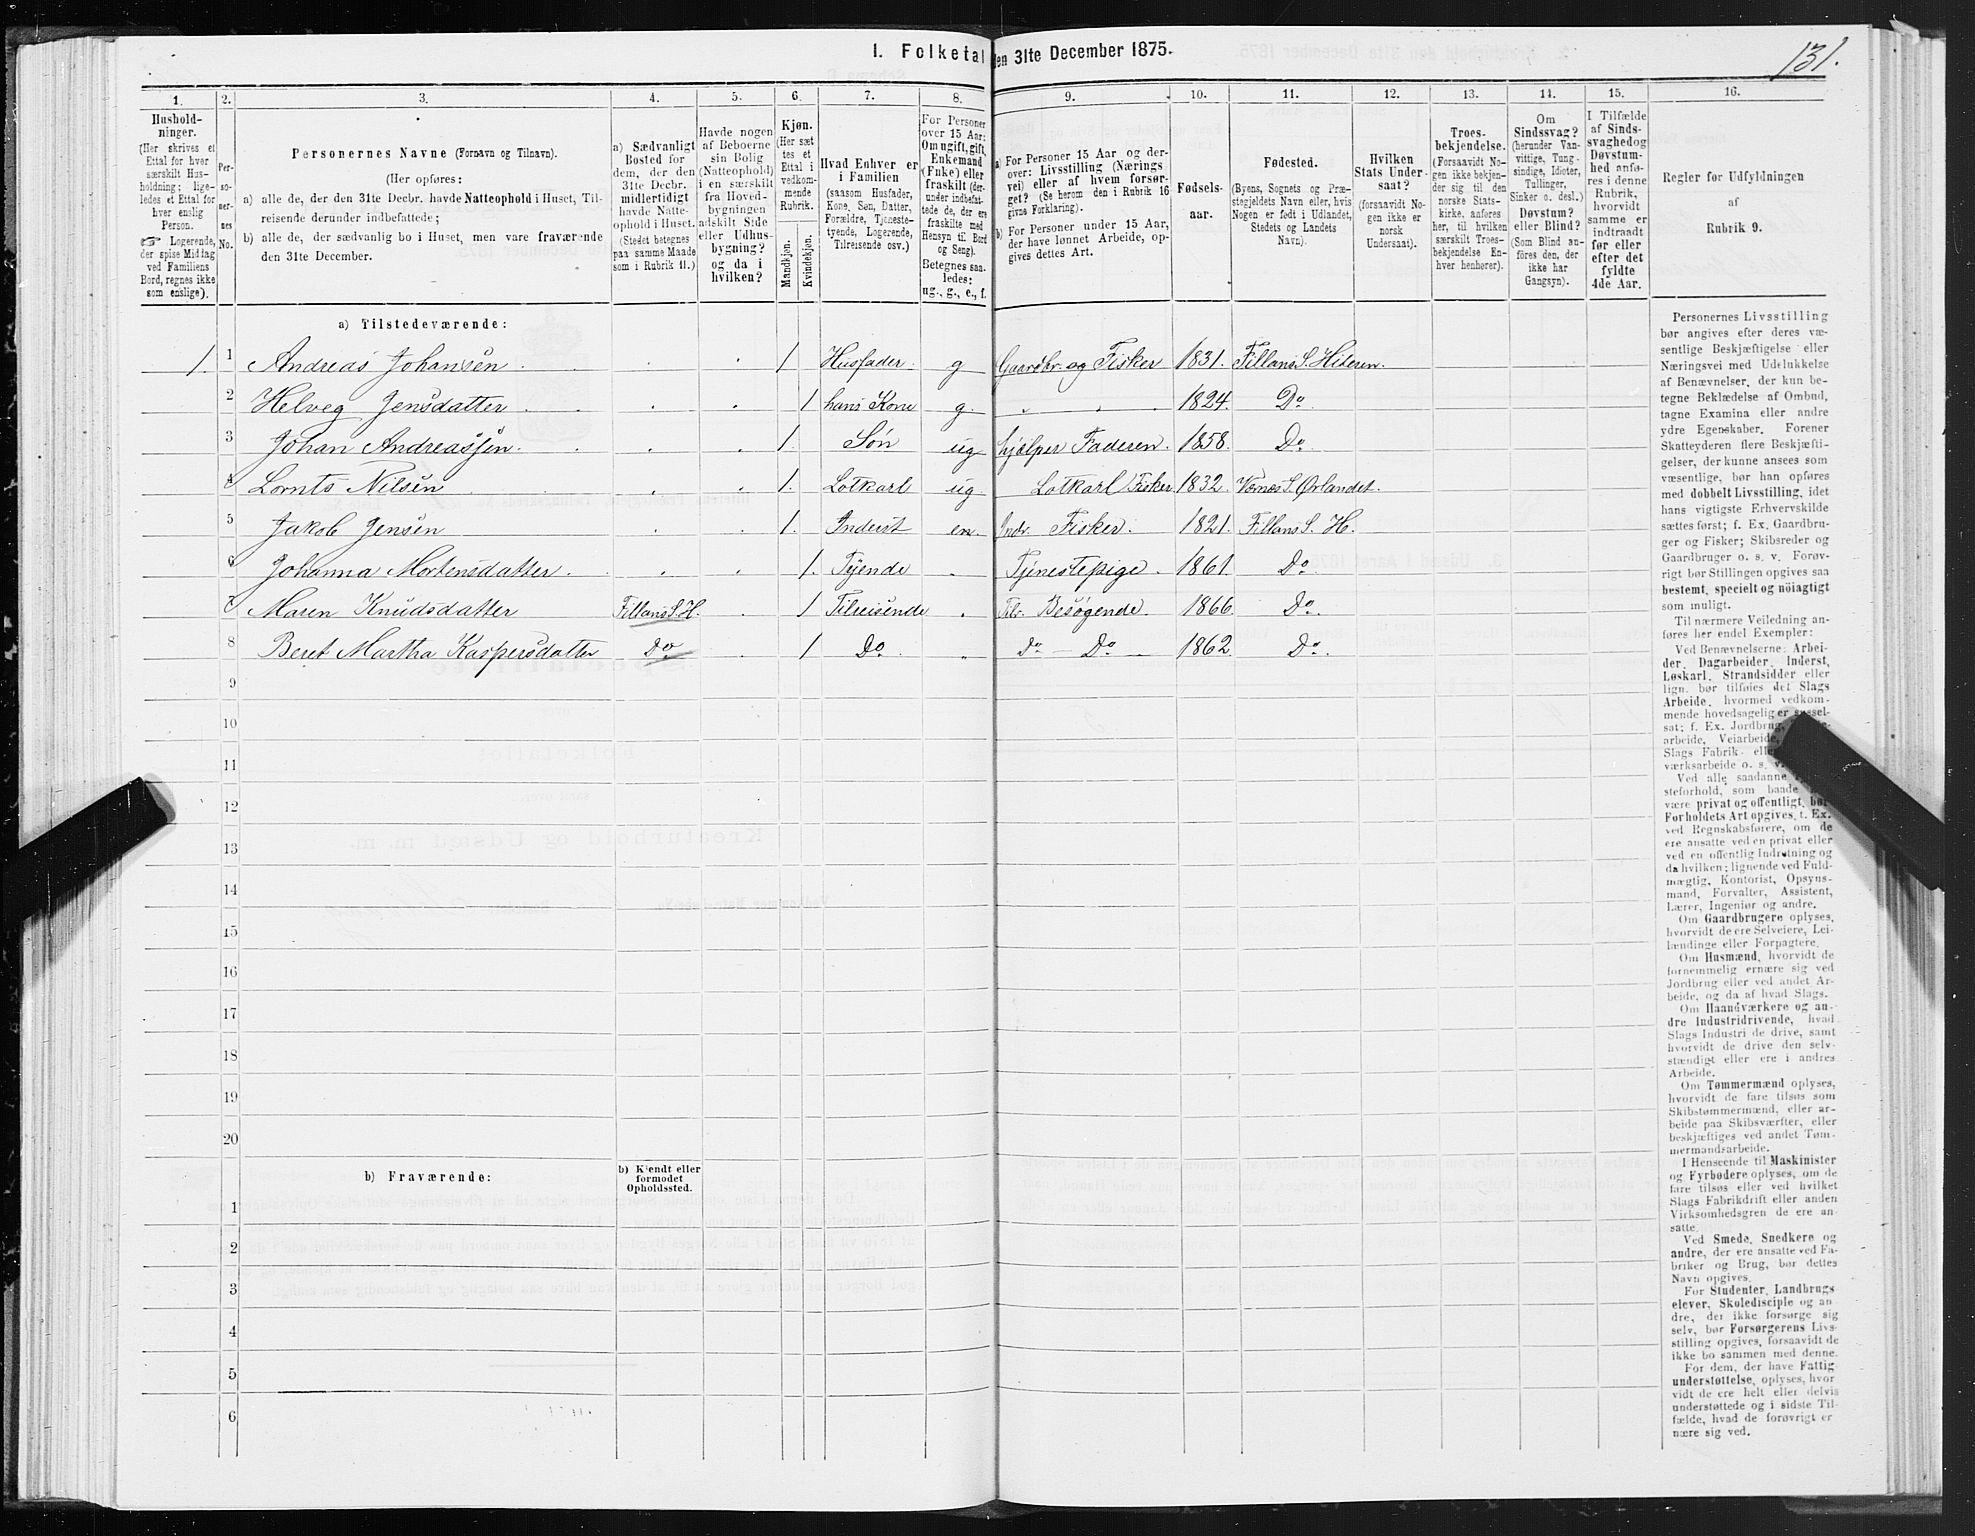 I. Folketal den 31te December 1875.
131.
1. 2. 3. 4. 5. 6. 7. 8. 9. 10. 11. 12. 13. 14. 15. 16.
Hushold-
ninger.
(Her skrives et
Ettal for hver
særskilt Hus-
holdning; lige-
ledes et Ettal for
hver enslig
Person.
☞ Logerende,
der spise Middag
ved Familiens
Bord, regnes ikke
som enslige).
Per-
so-
ner-
nes
No.
Personernes Navne (Fornavn og Tilnavn).
(Her opføres:
a) alle de, der den 31te Decbr. havde Natteophold i Huset, Til-
reisende derunder indbefattede;
b) alle de, der sædvanlig bo i Huset, men vare fraværende
den 31te December.
a) Sædvanligt
Bosted for
dem, der den
31te Decbr.
midlertidigt
havde Natte-
ophold i Huset.
(Stedet betegnes
paa samme Maade
som i Rubrik 11.)
Havde nogen
af Beboerne
sin Bolig
(Natteophold)
i en særskilt
fra Hoved-
bygningen
adskilt Side
eller Udhus-
bygning?
og da i
hvilken?
Kjøn.
(Her sæt
tes et
Ettal i
vedkom-
mende
Rubrik.
Mandkjøn.
Kvindekjøn.
Hvad Enhver er
i Familien
(saasom Husfader,
Kone, Søn, Datter,
Forældre, Tjeneste-
tyende, Logerende,
Tilreisende osv.)
For Personer
over 15 Aar:
Om ugift, gift,
Enkemand
(Enke) eller
fraskilt (der-
under indbefat-
tede de, der ere
fraskilte med
Hensyn til Bord
og Seng).
Betegnes saa-
ledes:
ug., g., e., f.
a) For Personer 15 Aar og der-
over: Livsstilling (Nærings
vei) eller af hvem forsør-
get? (Se herom den i Rubrik 16
givne Forklaring).
b) For Personer under 15 Aar,
der have lønnet Arbeide, op-
gives dettes Art.
Fødsels-
aar.
Fødested.
(Byens, Sognets og Præ-
stegjeldets Navn eller, hvis
Nogen er født i Udlandet,
Stedets og Landets
Navn).
Hvilken
Stats Under-
saat?
(forsaavidt No-
gen ikke er
norsk
Undersaat).
Troes-
bekjendelse.
(Forsaavidt No-
gen ikke bekjen-
der sig til den
norske Stats-
kirke, anføres
her, til hvilken
særskilt Troes-
bekjendelse En-
hver henhører).
Om
Sindssvag?
(herunder Van-
vittige, Tung-
sindige, Idioter,
Tullinger,
Sinker o. desl.)
Døvstum?
eller Blind?
(Som Blind an-
føres den, der
ikke har
Gangsyn).
I Tilfælde
af Sinds-
svaghed og
Døvstum-
hed anfø-
res i denne
Rubrik,
hvorvidt
samme er
indtraadt
før eller
efter det
fyldte
4de Aar.
Regler for Udfyldningen
af
Rubrik 9.
a) Tilstedeværende:
1. 1 Andreas Johansen 1 Husfader. g Gaardbr. og Fisker 1831. Fillans S. Hiteren.
2 Helveg Jensdatter 1 hans Kone g. 1824. Do
3 Johan Andreassen 1. Søn ug hjælper Faderen. 1858. Do
4 Lornts Nilsen 1. Lotkarl ug Lotkarl Fisker 1832. Værnes S. Ørlandet.
5 Jakob Jensen 1. Inderst en. Indr. Fisker. 1821. Fillans S. H.
6 Johanna Mortensdatter. 1. Tyende Tjenestepige. 1861. Do.
7 Maren Knudsdatter Fillans S. H. 1 Tilreisende Tilr. Besøgende. 1866. Do.
8 Beret Martha Kaspersdatter Do 1 Do. Do — Do — 1862 Do.
9
10
11
12
13
14
15
16
17
18
19
20
b) Fraværende:
b) Kjendt eller
formodet
Opholdssted.
1
2
3
4
5
6
Personernes Livsstilling
bør angives efter deres væ-
sentlige Beskjæftigelse eller
Næringsvei med Udelukkelse
af Benævnelser, der kun be-
tegne Beklædelse af Ombud,
tagne Examina eller andre
ydre Egenskaber. Forener
Skatteyderen flere Beskjæfti-
gelser, der kunne ansees som
væsentlige, bør han opføres
med dobbelt Livsstilling, idet
hans vigtigste Erhvervskilde
sættes først; f. Ex. Gaardbru-
ger og Fisker; Skibsreder og
Gaardbruger o. s. v. Forøv-
rigt bør Stillingen opgives saa
bestemt, specielt og nöiagtigt
som muligt.
Til nærmere Veiledning an-
føres her endel Exempler:
Ved Benævnelserne: Arbei-
der, Dagarbeider, Inderst,
Løskarl, Strandsidder eller
lign. bør tilføies det Slags
Arbeide, hvormed vedkom-
mende hovedsagelig er syssel-
sat; f. Ex. Jordbrug,
arbeide, Veiarbeide,
Slags Fabrik- eller
værksarbeide o. s. v.
Ved alle saadanne
steforhold, som baade
være privat og offentligt, bør
Forholdets Art opgives, f. Ex.
ved Regnskabsførere, om de
ere ansatte ved en privat eller
ved en offentlig Indretning og
da hvilken; lignende ved Fuld-
mægtig, Kontorist, Opsyns-
mand, Forvalter, Assistent,
Lærer, Ingeniør og andre.
Om Gaardbrugere oplyses,
hvorvidt de ere Selveiere, Lei-
lændinge eller Forpagtere.
Om Husmænd, hvorvidt de
fornemmelig ernære sig ved
Jordbrug eller ved andet Ar-
beide, og da af hvad Slags.
Om Haandværkere og an-
dre Industridrivende, hvad
Slags Industri de drive, samt
hvorvidt de drive den selv-
stændigt eller ere i andres
Arbeide.
Om Tømmermænd oplyses,
hvorvidt de fare tilsøs som
Skibstømmermænd, eller ar-
beide paa Skibsværfter, eller
beskjæftiges ved andet Tøm-
mermandsarbeide.
I Henseende til Maskinister
og Fyrbødere oplyses, om de
fare tilsøs eller ved hvilket
Slags Fabrikdrift eller anden
Virksomhedsgren de ere an-
satte.
Ved Smede, Snedkere og
andre, der ere ansatte ved Fa-
briker og Brug, bør dettes
Navn opgives.
For Studenter, Landbrugs
elever, Skoledisciple og an-
dre, der ikke forsørge sig
selv, bør Forsørgerens Livs-
stilling opgives, forsaavidt de
ikke bo sammen med denne.
For dem, der have Fattig-
understøttelse, oplyses, hvor
vidt de ere helt eller delvis
understøttede og i sidste Til-
fælde, hvad de forøvrigt er
nære sig ved.